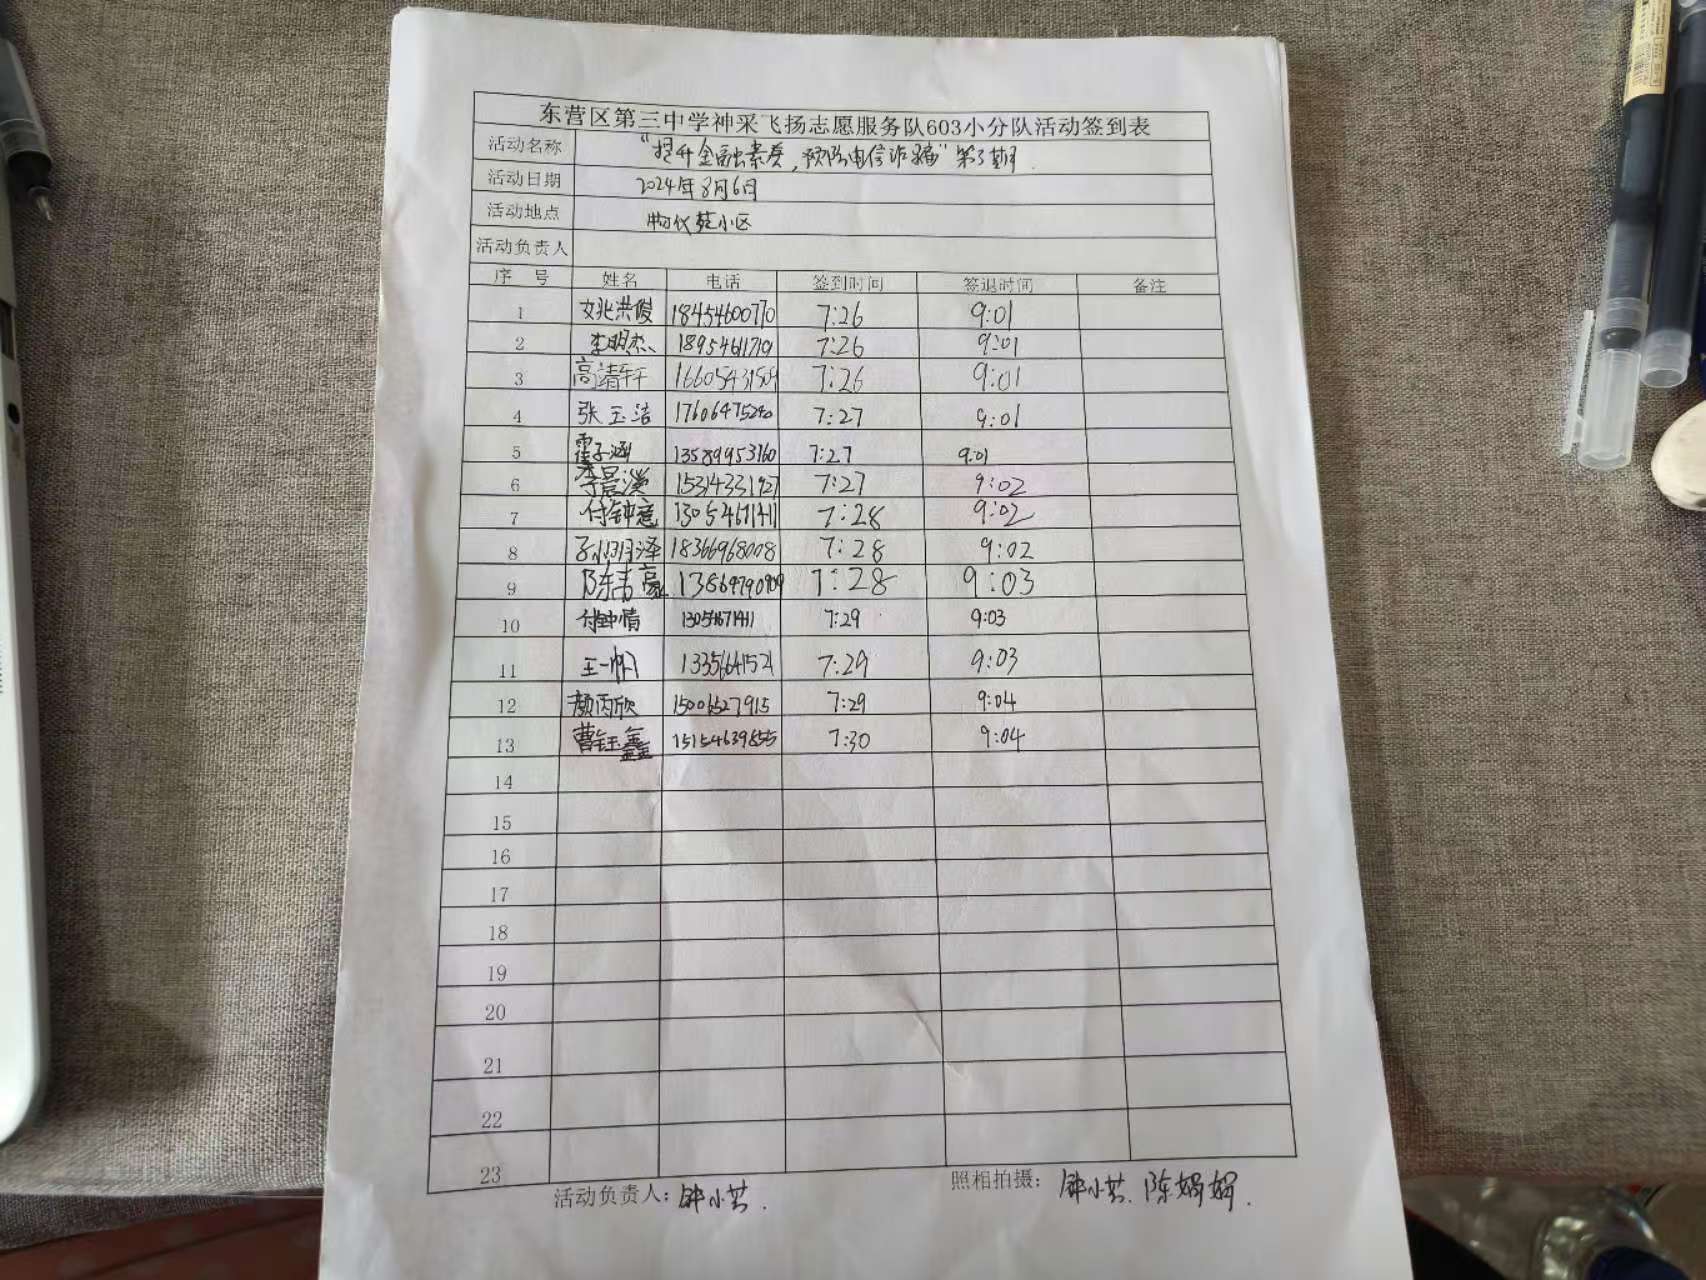 东营区第三中学神采飞扬志愿服务队603小分队活动签到表
活动名称 “提升金融素养，预防电信诈骗”第3期.
活动日期 2024年8月6日
活动地点 物化苑小区
活动负责人
序号 姓名 电话 签到时间 签退时间 备注
1 姚洪俊 18454600770 7:26 9:01
2 李明杰 18954611719 7:26 9:01
3 高清轩 7:26 9:01
4 张玉洁 17606475240 7:27 9:01
5 霍子涵 13589953760 7:27 9:01
6 李景溪 15314331927 7:27 9:02
7 付钟意 13054671411 7:28 9:02
8 孙明泽 18366968008 7:28 9:02
9 陈吉豪 7:28 9:03
10 付钟情 13054671411 7:29 9:03
11 王一帆 13356641521 7:29 9:03
12 颜丙欣 15006527915 7:29 9:04
13 曹钰鑫 15154639855 7:30 9:04
14
15
16
17
18
19
20
21
22
23
活动负责人：钟小芸. 照相拍摄：钟小芸、陈娟娟.